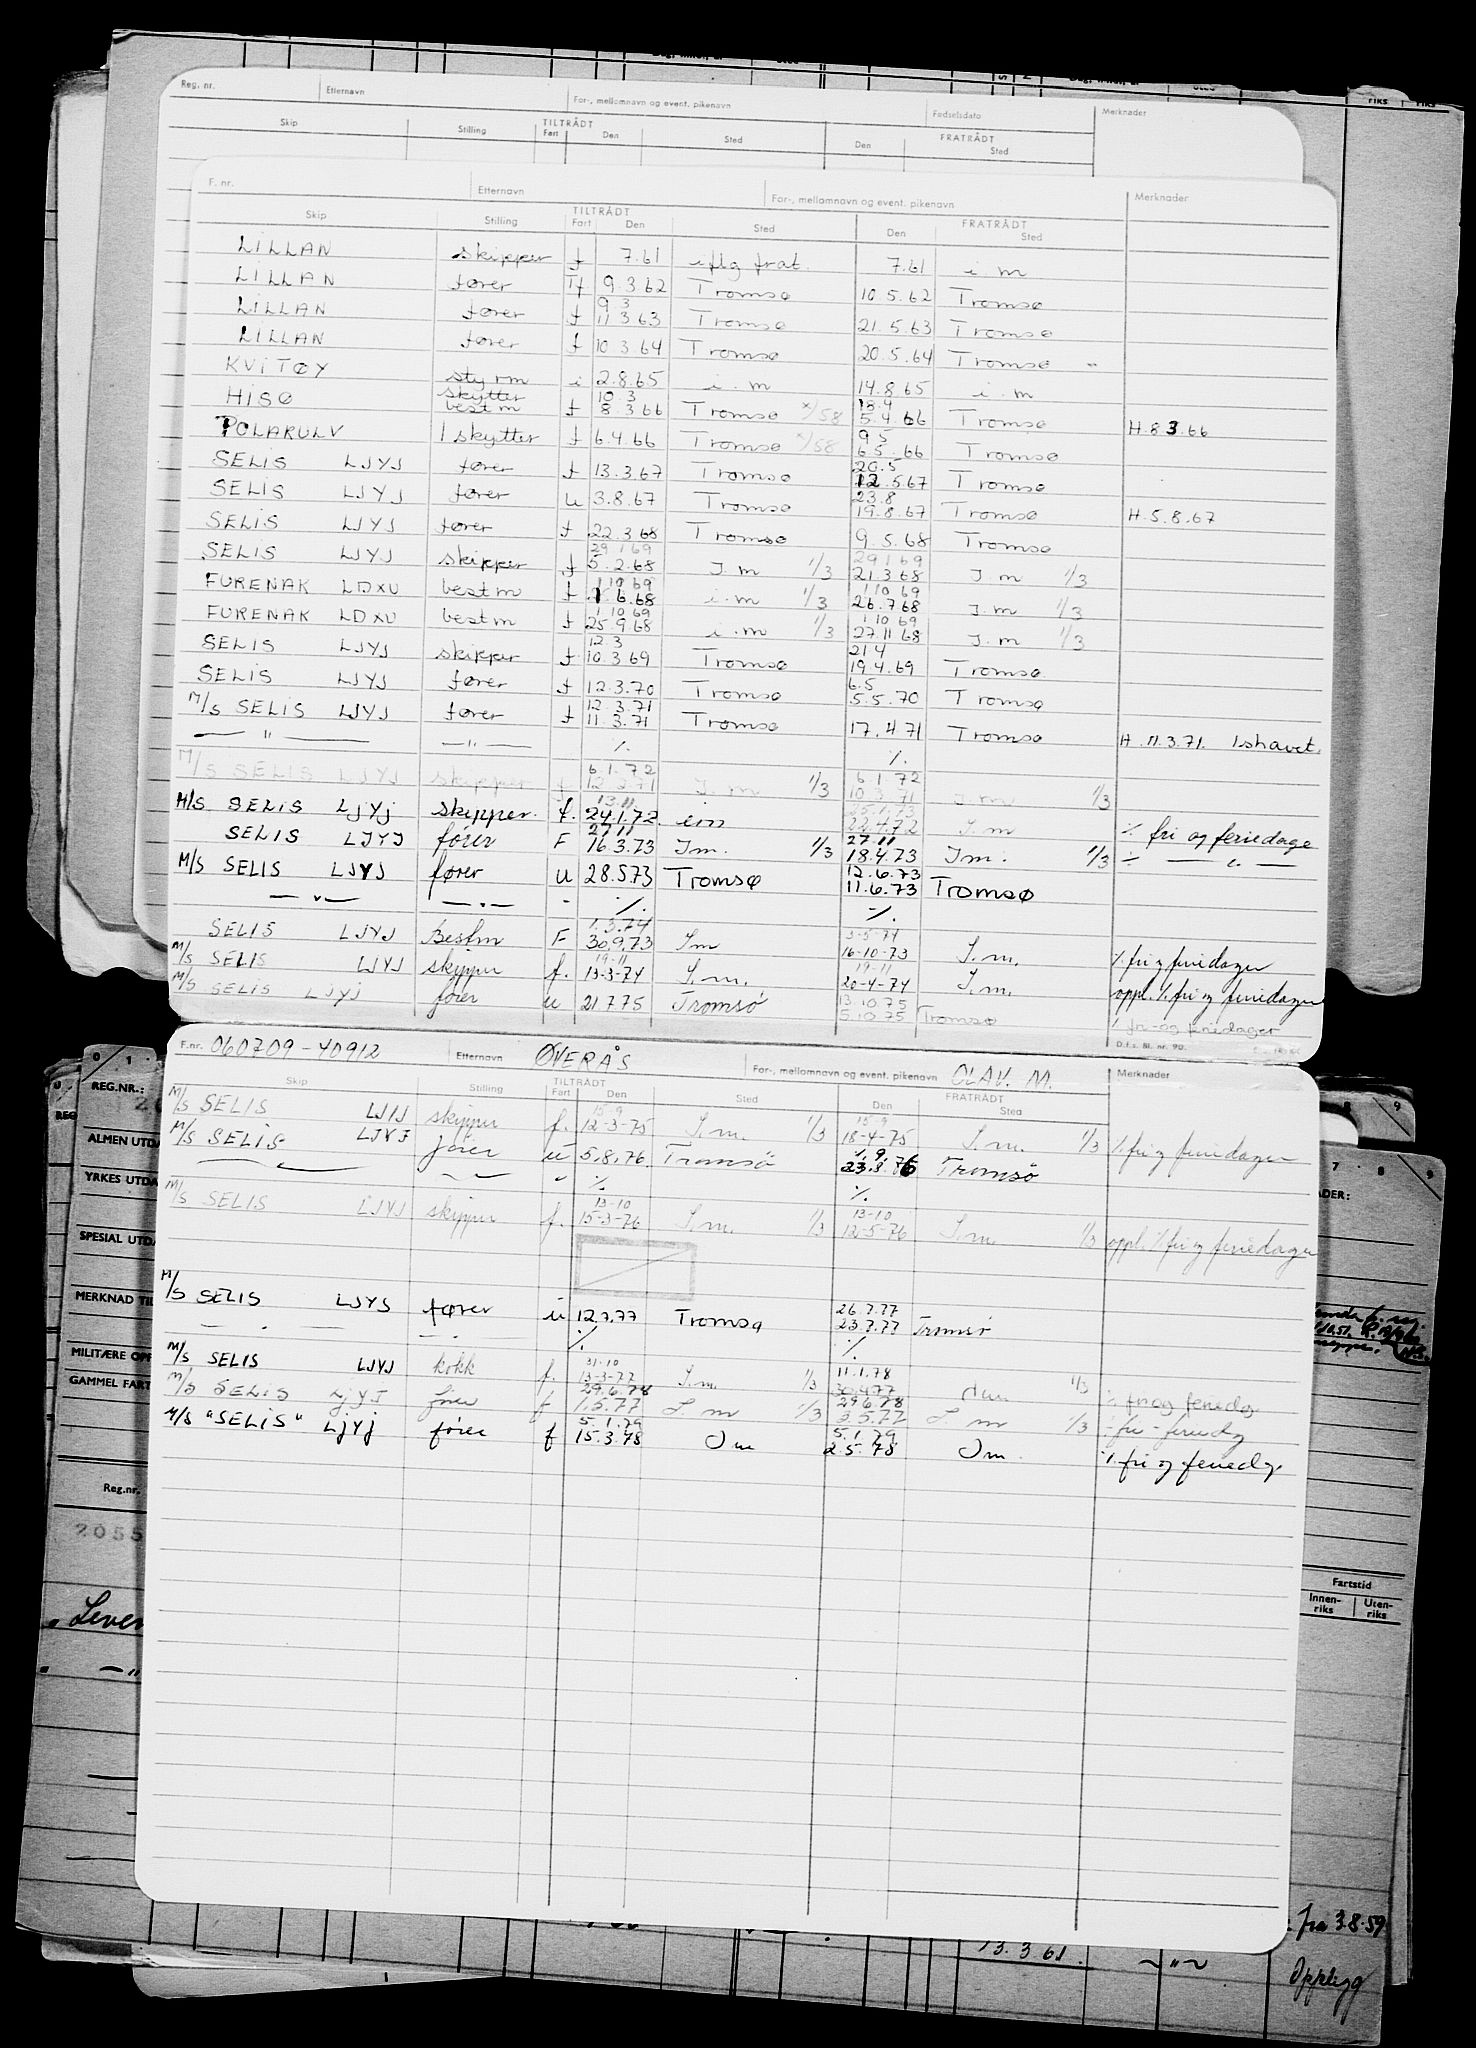 Reg. nr. Etternavn For-, mellomnavn og event. pikenavn Fødselsdato Merknader
Skip Stilling TILTRÅDT Fart Den Sted Den FRATRÅDT Sted
F. nr. Etternavn For-, mellomnavn og event. pikenavn Merknader
Skip Stilling TILTRÅDT Fart Den Sted Den FRATRÅDT Sted
LILLAN skipper f 7.61 iflg frat. 7.61 i.m
LILLAN fører f 9.3.62 Tromsø 10.5.62 Tromsø
LILLAN fører f 9 3 11 3 63 Tromsø 21.5.63 Tromsø
LILLAN fører f 10 3.64 Tromsø 20.5.64 Tromsø
KVITØY styrm i 2.8.65 i.m 14.8.65 i.m
HISØ skytter bestm f 10.3 8.3.66 Tromsø x/58 18.4 5.4.66 Tromsø H.8.3.66
POLARULV 1 skytter f 6.4.66 Tromsø x/58 9 5 6.5.66 Tromsø
SELIS LJYJ fører f 13.3.67 Tromsø 20.5 12.5.67 Tromsø
SELIS LJYJ fører u 3.8.67 Tromsø 23.8 19.8.67 Tromsø H.5.8.67
SELIS LJYJ fører f 22.3.68 Tromsø 9.5.68 Tromsø
SELIS LJYJ skipper f 29 1 69 5.2.68 I.m 1/3 29 1 69 21.3 68 I.m 1/3
FURENAK LDXU bestm f 1 10 69 6.68 i.m 1/3 1 10 69 26.7 68 I.m 1/3
FURENAK LDXU bestm f 1 10 69 25.9 68 i.m 1/3 1 10 69 27.11 68 I.m 1/3
SELIS LJYJ skipper f 12.3 10.3 69 Tromsø 21 4 19.4.69 Tromsø
SELIS LJYJ fører f 12.3.70 Tromsø 6.5 5.5.70 Tromsø
M/S SELIS LJYJ fører f 12.3.71 11.3.71 Tromsø 17.4 71 Tromsø
— " — — " — ./. ./. H.11.3.71. Ishavet.
M/S SELIS LJYJ skipper f 6.1.72 12.2.71 I.m 1/3 6.1.72 10 3 71 I.m 1/3
M/S SELIS LJYJ skipper. f. 13.11 24.1.72. 22.4.72 I.m ./. fri og feriedage
SELIS LJYJ fører F 27 11 16 3.73 Im. 1/3 27.11 18.4.73 Im. 1/3 ./. — " —
M/S SELIS LJYJ fører u 28.5.73 Tromsø 12.6.73 11.6.73 Tromsø
— " — — " — - ./. ./.
SELIS LJYJ Bestm F 1.3.74 30.9.73 I.m 3-5-74 16-10-73 I.m. ./. fri og feriedager
M/S SELIS LJYJ skipper f. 19-11 13-3-74 I.m. 19-11 20-4-74 I.m. oppl. ./. fri og feriedager
M/S SELIS LJYJ fører u 21 7 75 Tromsø 13.10.75 5.10 75 Tromsø ./. fri-og feriedager
D.f.s. Bl. nr. 90.
F.nr. 060709-40912 Etternavn ØVERÅS For-, mellomnavn og event. pikenavn OLAV. M. Merknader
Skip Stilling TILTRÅDT Fart Den Sted Den FRATRÅDT Sted
M/S SELIS LJYJ skipper f. 15-9 12-3-75 I.m. 1/3 15-9 18-4-75 I.m. 1/3 ./. fri og feriedager
M/S SELIS LJYJ fører u 5.8.76. Tromsø 1.9. 23.8.76 Tromsø
— " — — " — " ./. ./.
M/S SELIS LJYJ skipper f. 13-10 15-3-76 I.m. 1/3 13-10 12-5-76 I.m. 1/3 oppl. ./. fri og feriedager
M/S SELIS LJYJ fører u 12.7.77 Tromsø 26.7.77 23.7.77 Tromsø
— " — — " ./. ./.
M/S SELIS LJYJ kokk f. 31-10 13-3-77 I.m. 1/3 11.1.78 30.4.77 1/3 ./. fri og feriedg
M/S SELIS LJYJ fører f 29.6.78 1.5.77 I.m 1/3 29 6.78 3.5.77 I.m 1/3 ./. fri - feriedg
M/S "SELIS" LJYJ fører f 5.1.79 15.3.78 Im 5.1.79 2.5.78 Im. ./. fri og feriedg.
REG.NR.:
ALMEN UTDA
YRKES UTDA
SPESIAL UTD
MERKNAD TIL
MILITÆRE OPP
GAMMEL FART
Reg.nr.
2055
Fartstid
Innen-riks Uten-riks
fra 3.8.59
13.3 61. ~"~ Opplygg